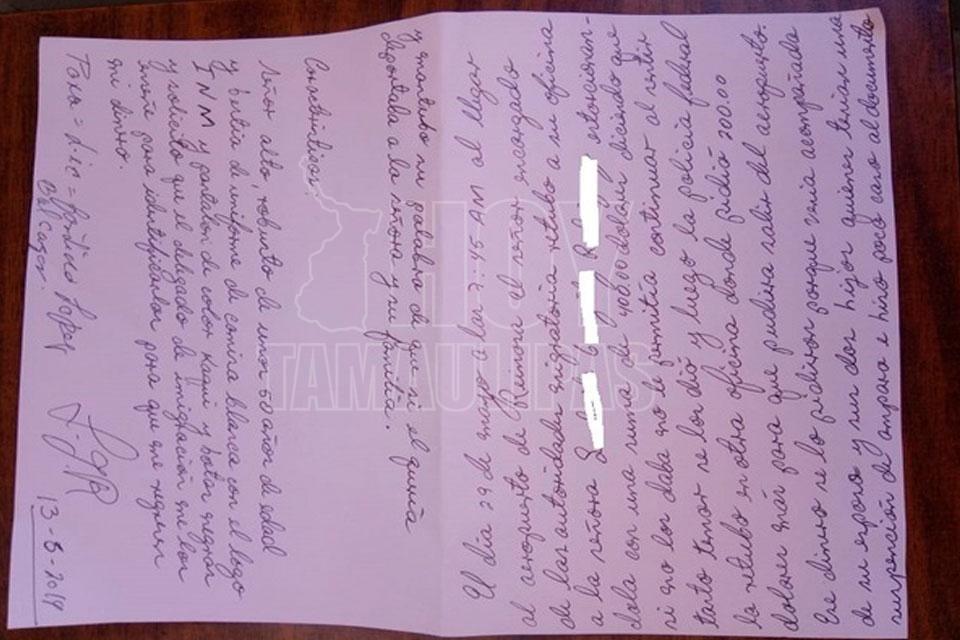 El dia 29 de mayo a las 7:45 AM al llegar
al aeropuerto de Reinosa el señor encargado
de las autoridades migratoria retubo a su oficina
a la señora extorcionan-
dola con una suma de 400.00 dolares diciendo que
si no los daba no le permitia continuar al sentir
tanto temor se los dió y luego la policia fedral
la retubo en otra oficina donde pidió 200.00
dolares más para que pudiera salir del aeropuerto.
Ese dinero se lo pidieron porque venia acompañada
de su esposo y sus dos hijos quienes tenian una
suspención de amparo e hizo poco caso al documento
y su palabra de que si el queria
deportaba a la señora y su familia.
Señor alto, robusto de unos 50 años de edad
y vestia de uniforme de camisa blanca con el logo
INM y pantalon de color Kaqui y botas negras
y solicito que el delegado de inmigración me los
enseñe para identificarlos para que me regresen
mi dinero.
Para = Lic = Lopez
13-6-2019
HOY
TAMAULIPAS